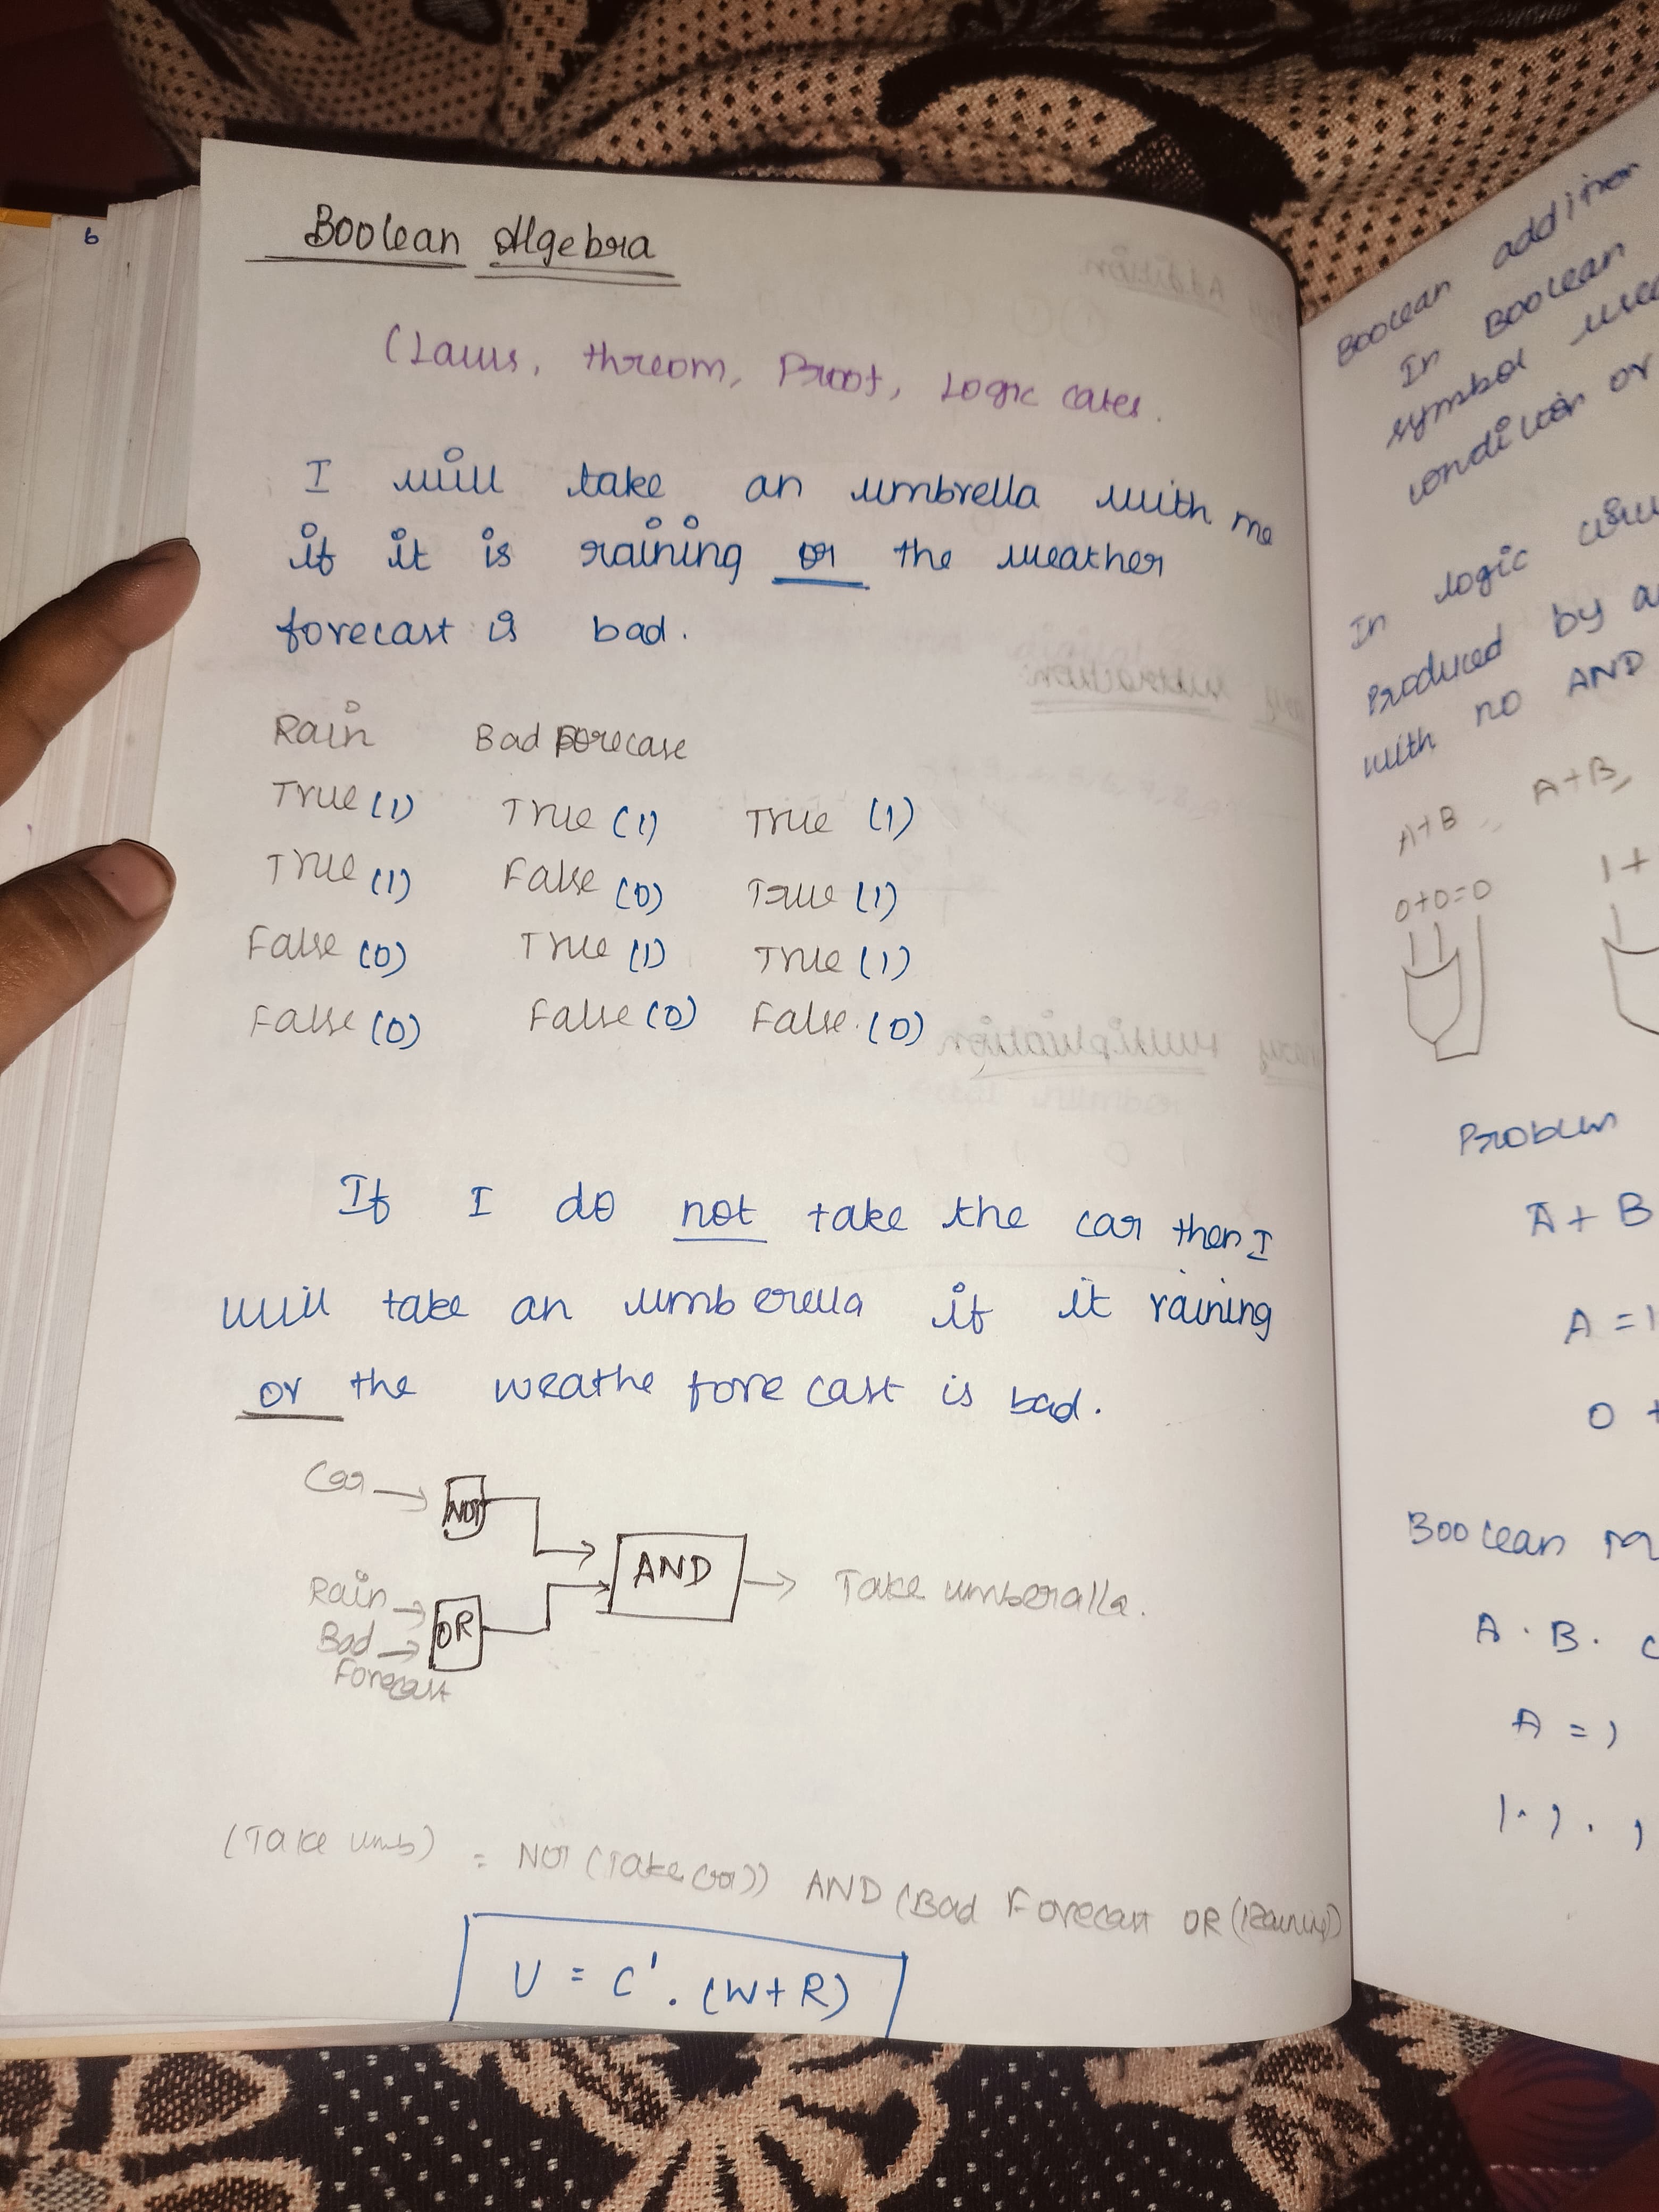 6
Boolean Algebra
(Laws, threom, Proof, Logic Gates.
I will take an umbrella with me
if it is raining or the weather
forecast is bad.
Rain Bad Forecase
True (1) True (1) True (1)
True (1) False (0) True (1)
False (0) True (1) True (1)
False (0) False (0) False. (0)
If I do not take the car then I
will take an umb erella if it raining
or the weathe fore cast is bad.
Car → NOT
AND → Take umberalla.
Rain →
Bad → OR
Forecast
(Take umb) = NOT (Take Car)) AND (Bad Forecast OR (Raining))
U = C' . (W+R)
Boolean addition
In Boolean
symbol used
condition or
In logic
Produced by
with no AND
A+B = A+B,
0+0=0 1+
Problem
A + B
A = 1
0 +
Boolean
A . B . C
A = 1
1 . 1 . 1